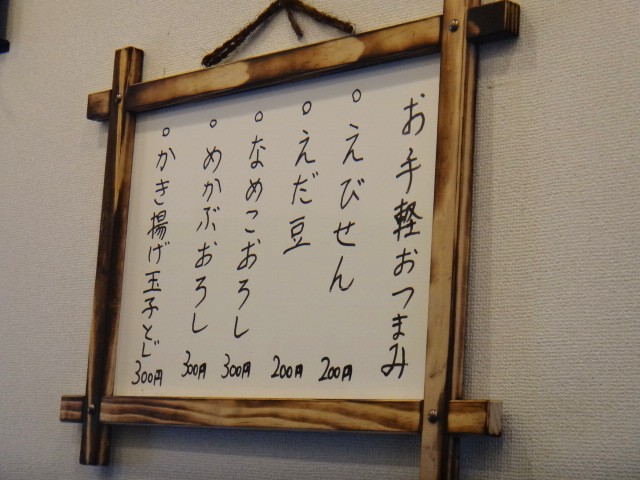 お手軽おつまみ
○えびせん 200円
○えだ豆 200円
○なめこおろし 300円
○めかぶおろし 300円
○かき揚げ玉子とじ 300円